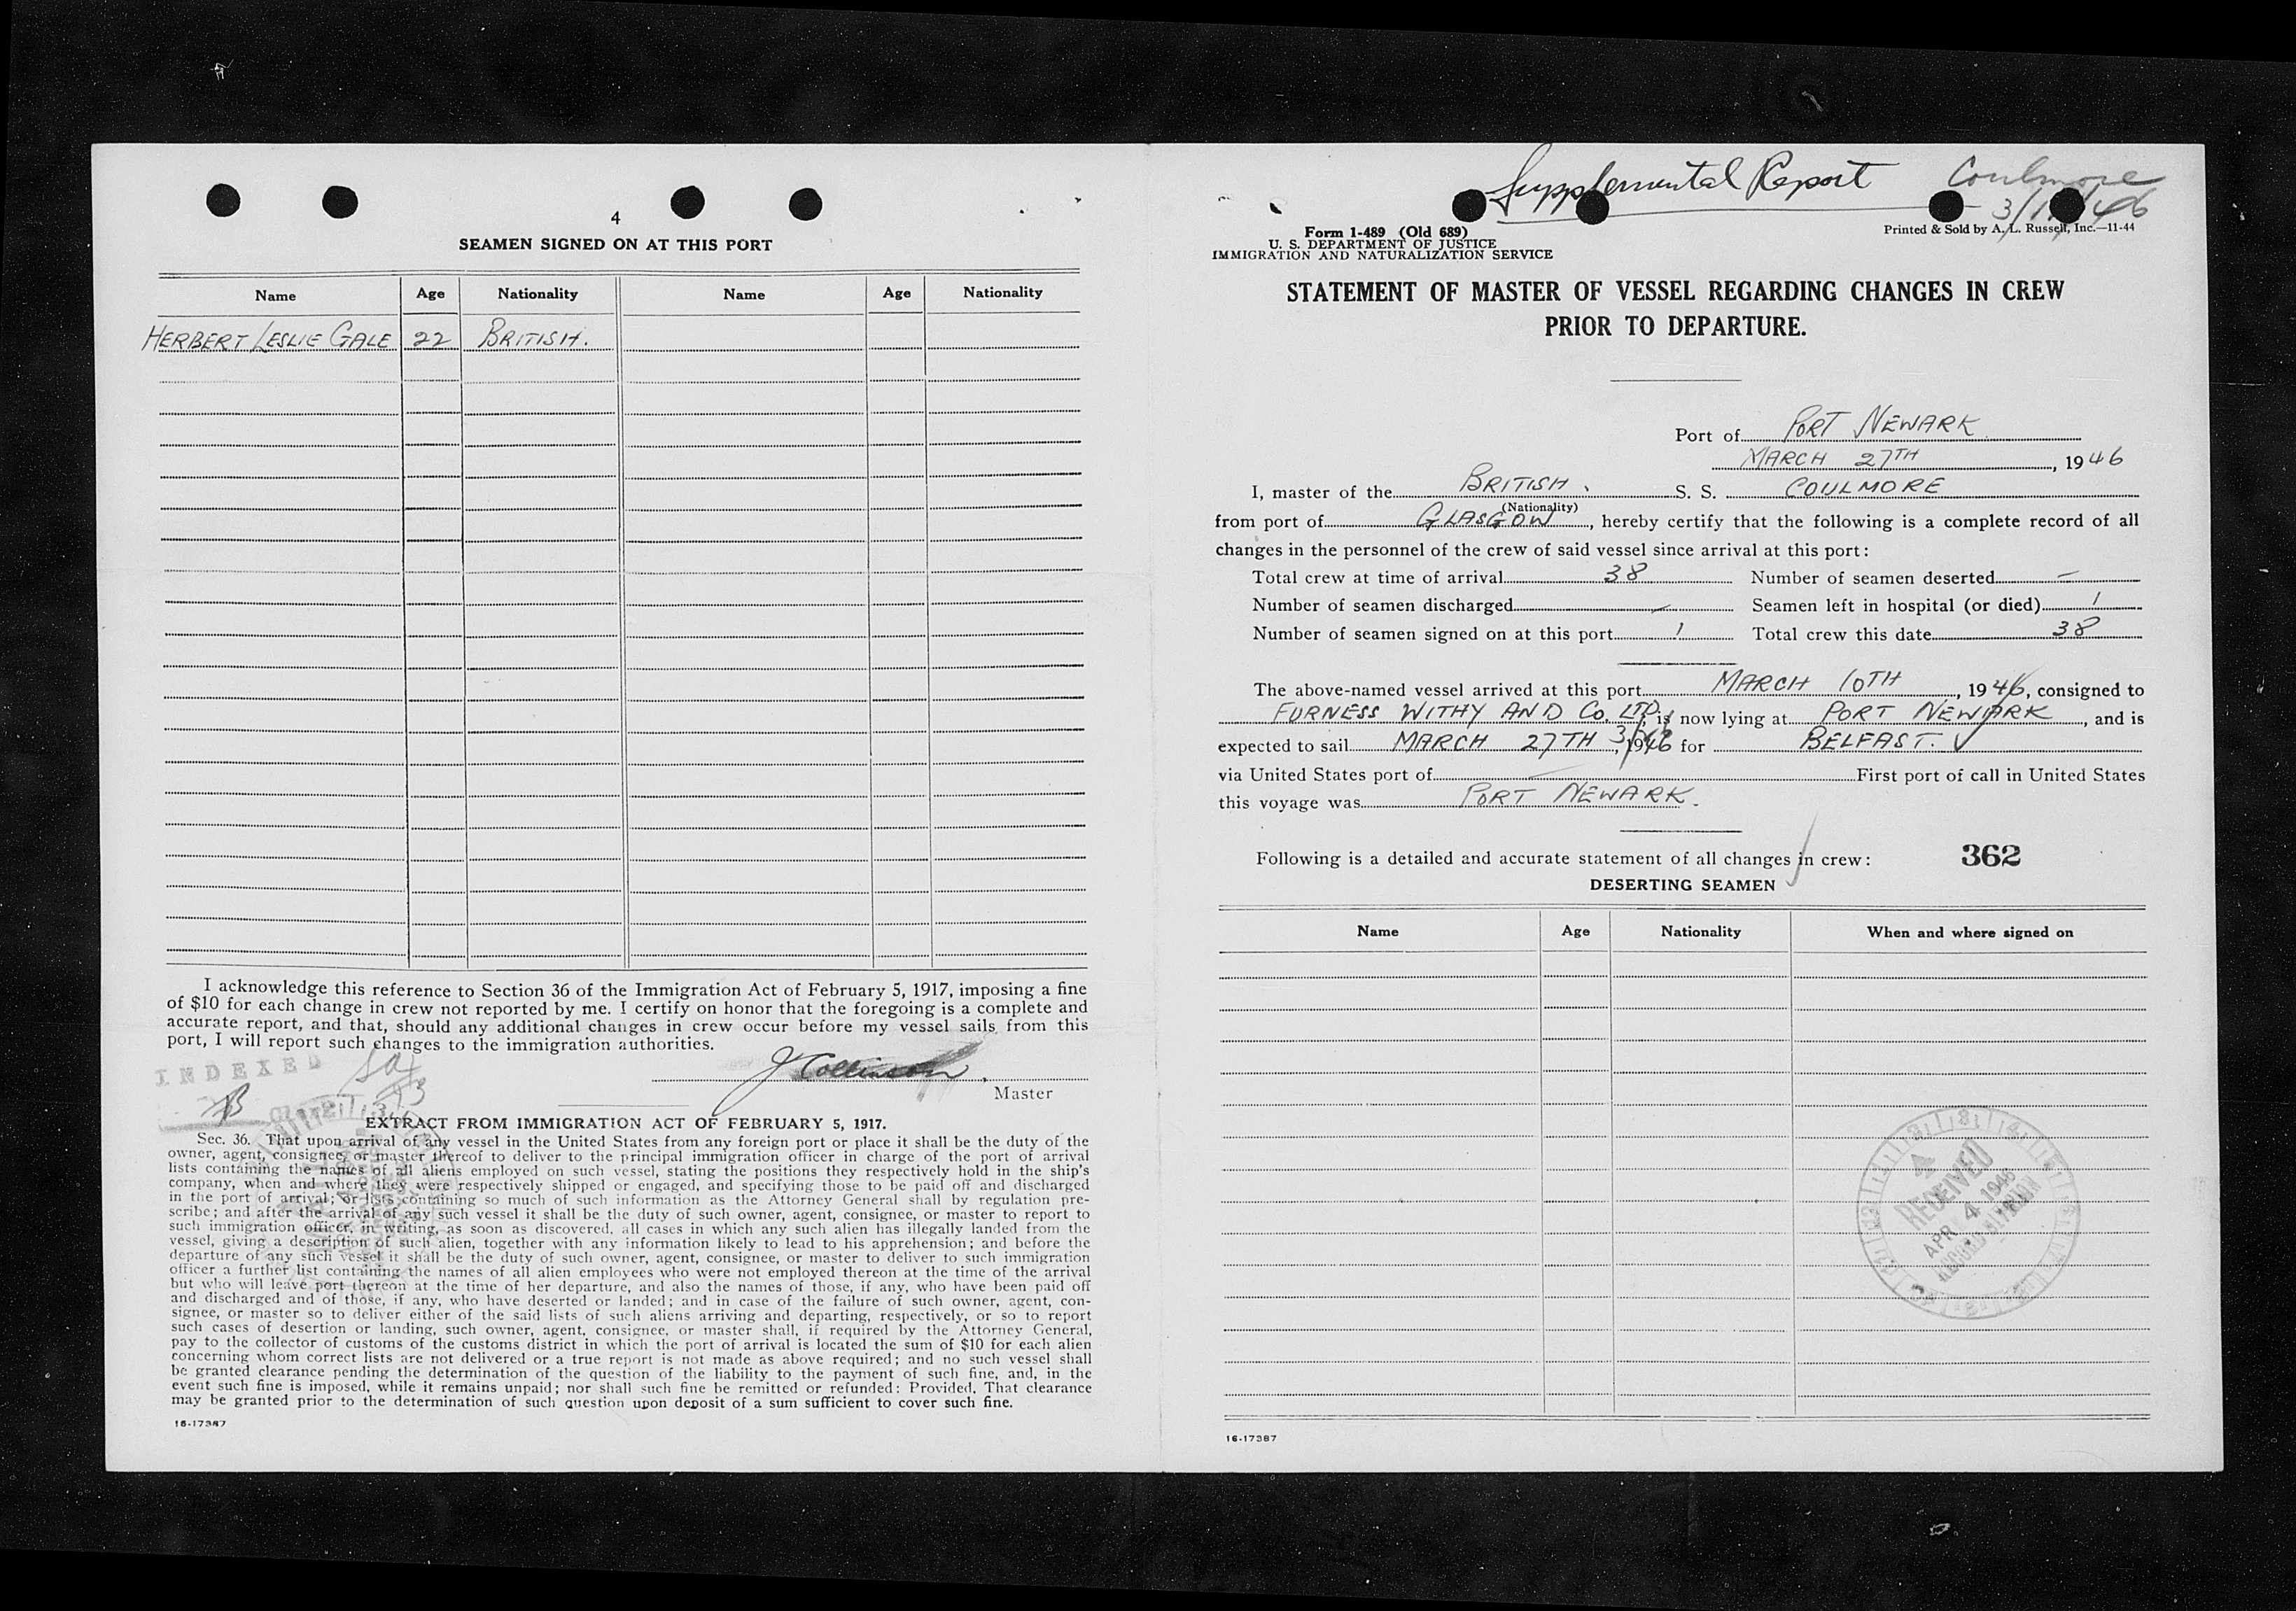 4
SEAMEN SIGNED ON AT THIS PORT
Name Age Nationality Name Age Nationality
HERBERT LESLIE GALE 22 BRITISH.
I acknowledge this reference to Section 36 of the Immigration Act of February 5, 1917, imposing a fine
of $10 for each change in crew not reported by me. I certify on honor that the foregoing is a complete and
accurate report, and that, should any additional changes in crew occur before my vessel sails from this
port, I will report such changes to the immigration authorities.
INDEXED
J Collinson
Master
EXTRACT FROM IMMIGRATION ACT OF FEBRUARY 5, 1917.
Sec. 36. That upon arrival of any vessel in the United States from any foreign port or place it shall be the duty of the
owner, agent, consignee, or master thereof to deliver to the principal immigration officer in charge of the port of arrival
lists containing the names of all aliens employed on such vessel, stating the positions they respectively hold in the ship's
company, when and where they were respectively shipped or engaged, and specifying those to be paid off and discharged
in the port of arrival; or lists containing so much of such information as the Attorney General shall by regulation pre-
scribe; and after the arrival of any such vessel it shall be the duty of such owner, agent, consignee, or master to report to
such immigration officer, in writing, as soon as discovered, all cases in which any such alien has illegally landed from the
vessel, giving a description of such alien, together with any information likely to lead to his apprehension; and before the
departure of any such vessel it shall be the duty of such owner, agent, consignee, or master to deliver to such immigration
officer a further list containing the names of all alien employees who were not employed thereon at the time of the arrival
but who will leave port thereon at the time of her departure, and also the names of those, if any, who have been paid off
and discharged and of those, if any, who have deserted or landed; and in case of the failure of such owner, agent, con-
signee, or master so to deliver either of the said lists of such aliens arriving and departing, respectively, or so to report
such cases of desertion or landing, such owner, agent, consignee, or master shall, if required by the Attorney General,
pay to the collector of customs of the customs district in which the port of arrival is located the sum of $10 for each alien
concerning whom correct lists are not delivered or a true report is not made as above required; and no such vessel shall
be granted clearance pending the determination of the question of the liability to the payment of such fine, and, in the
event such fine is imposed, while it remains unpaid; nor shall such fine be remitted or refunded: Provided, That clearance
may be granted prior to the determination of such question upon deposit of a sum sufficient to cover such fine.
16-17387
Supplemental Report Coulmore
Form 1-489 (Old 689)
Printed & Sold by A. L. Russell, Inc.—11-44
U. S. DEPARTMENT OF JUSTICE
IMMIGRATION AND NATURALIZATION SERVICE
STATEMENT OF MASTER OF VESSEL REGARDING CHANGES IN CREW
PRIOR TO DEPARTURE.
Port of PORT NEWARK
MARCH 27TH, 1946
I, master of the BRITISH. S. S. COULMORE
(Nationality)
from port of GLASGOW, hereby certify that the following is a complete record of all
changes in the personnel of the crew of said vessel since arrival at this port:
Total crew at time of arrival 38 Number of seamen deserted —
Number of seamen discharged — Seamen left in hospital (or died) 1
Number of seamen signed on at this port 1 Total crew this date 38
The above-named vessel arrived at this port MARCH 10TH, 1946, consigned to
FURNESS WITHY AND CO. LTD., is now lying at PORT NEWARK, and is
expected to sail MARCH 27TH, 1946 for BELFAST.
via United States port of — First port of call in United States
this voyage was PORT NEWARK.
Following is a detailed and accurate statement of all changes in crew: 362
DESERTING SEAMEN
Name Age Nationality When and where signed on
RECEIVED
APR 4 1946
16-17387